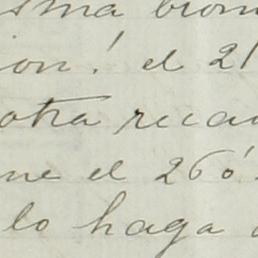 sma brom
ion! el 21
otra reca
ne el 26 ó
lo haga